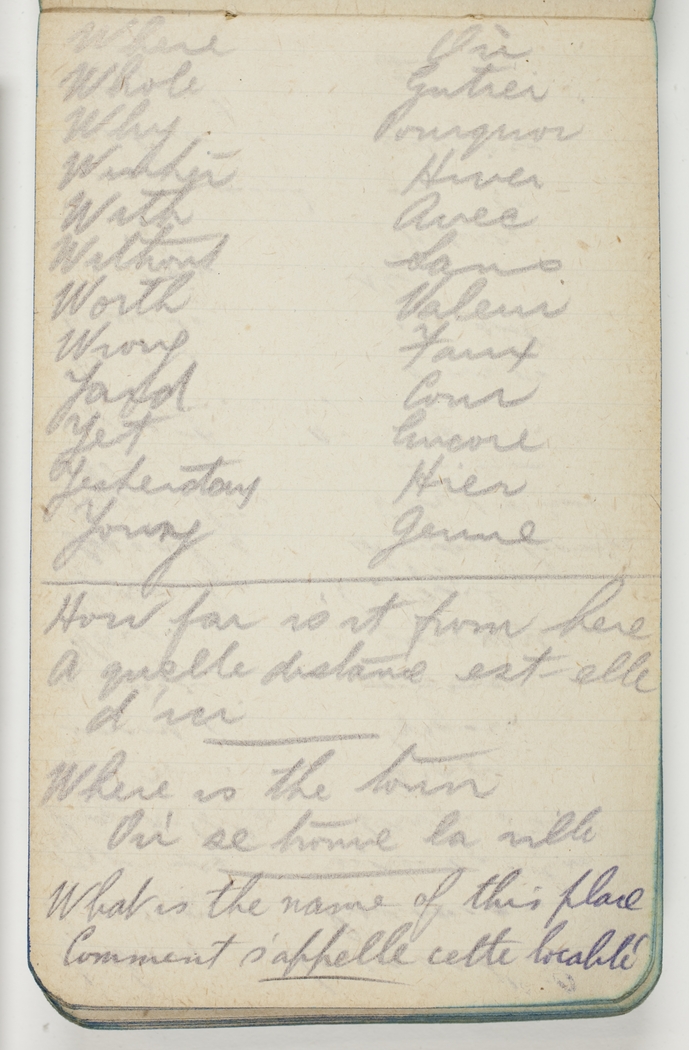 Where Où
Whole Entier
Why Pourquoi
Winter Hiver
With Avec
Without Sans
Worth Valeur
Wrong Faux
Yard Cour
Yet Encore
Yesterday Hier
Young Jeune
How far is it from here
A quelle distance est-elle
d'ici
Where is the town
Où se trouve la ville
What is the name of this place
Comment s'appelle cette localité